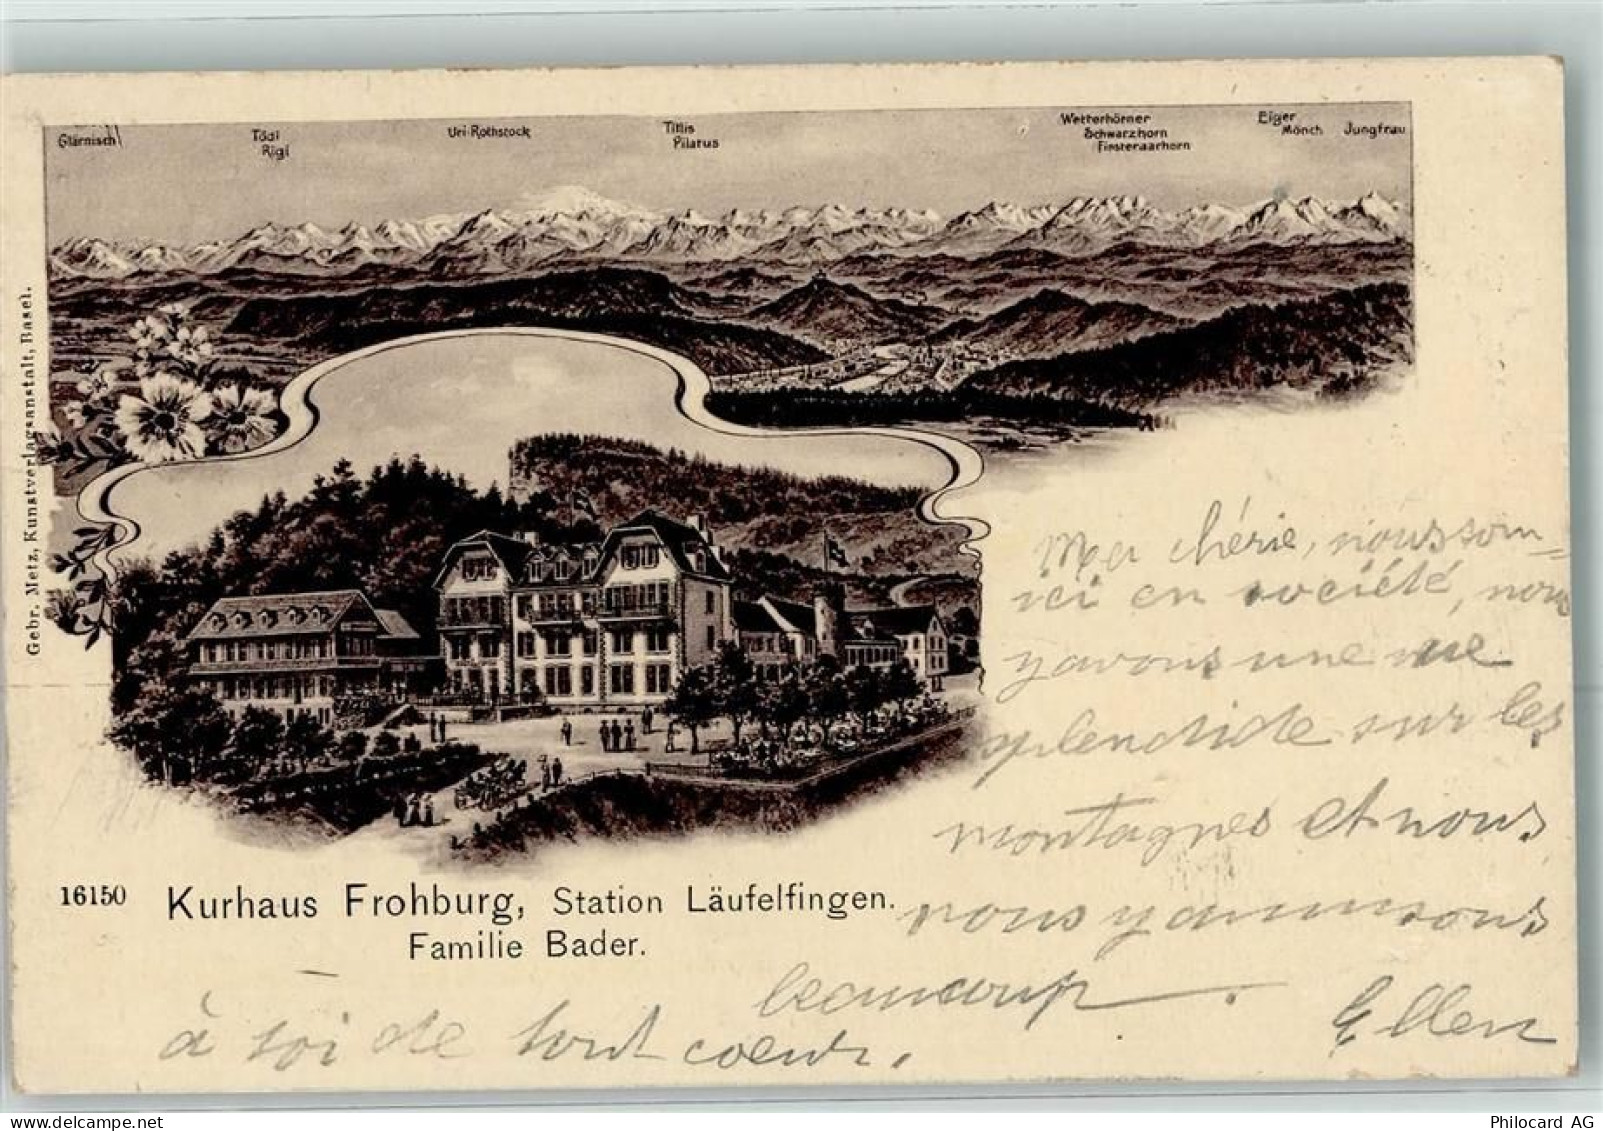 Glärnisch
Tödi
Rigi
Uri-Rothstock
Titlis
Pilatus
Wetterhörner
Schwarzhorn
Finsteraarhorn
Eiger
Mönch
Jungfrau
Gebr. Metz, Kunstverlagsanstalt, Basel.
Ma chérie, nous som-
ici en société, nous
y avons une vue
splendide sur les
montagnes et nous
nous y amusons
beaucoup.
Ellen
à toi de tout coeur.
16150 Kurhaus Frohburg, Station Läufelfingen.
Familie Bader.
Philocard AG